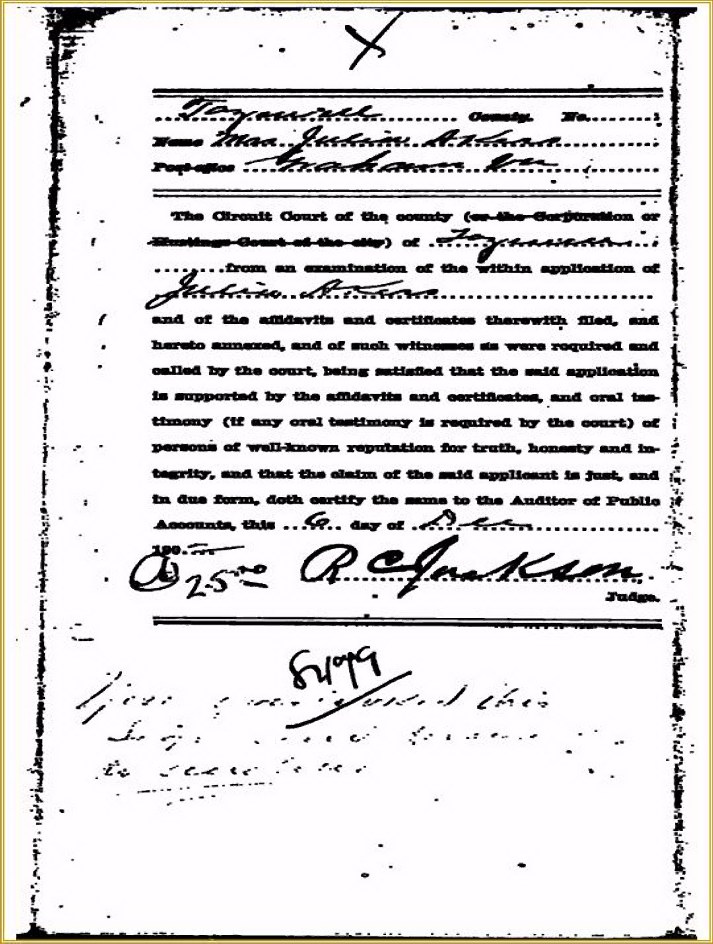 X
Tazewell County. No.
Name Mrs Julia Akers
Post-office Graham Va
The Circuit Court of the county (or the Corporation or
Hustings Court of the city) of Tazewell
from an examination of the within application of
Julia Akers
and of the affidavits and certificates therewith filed, and
hereto annexed, and of such witnesses as were required and
called by the court, being satisfied that the said application
is supported by the affidavits and certificates, and oral tes-
timony (if any oral testimony is required by the court) of
persons of well-known reputation for truth, honesty and in-
tegrity, and that the claim of the said applicant is just, and
in due form, doth certify the same to the Auditor of Public
Accounts, this 6 day of Dec
190
25.00 R C Jackson
Judge.
this